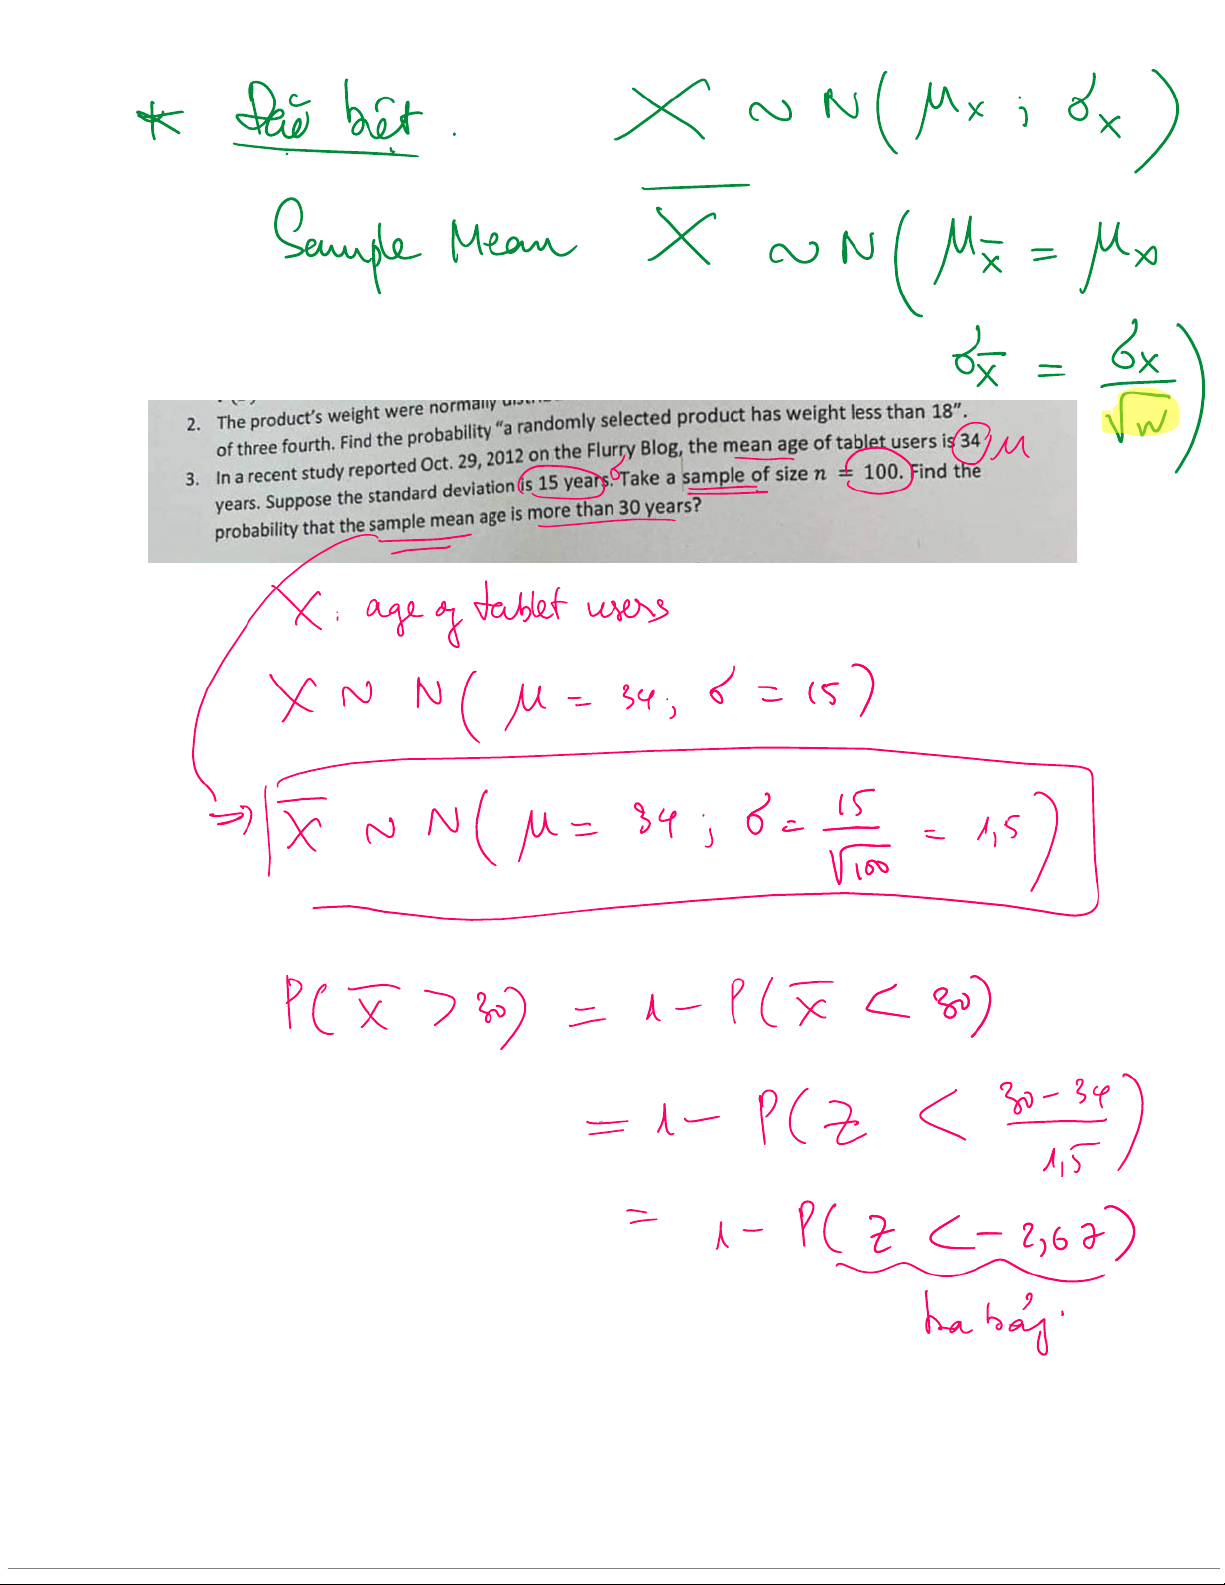 * Đặc biệt. X ~ N( μx ; σx )
Sample Mean X̄ ~ N( μx̄ = μx
σx̄ = σx / √n )
2. The product's weight were normally
of three fourth. Find the probability "a randomly selected product has weight less than 18".
3. In a recent study reported Oct. 29, 2012 on the Flurry Blog, the mean age of tablet users is 34 μ
years. Suppose the standard deviation is 15 years. σ Take a sample of size n = 100. Find the
probability that the sample mean age is more than 30 years?
X: age of tablet users
X ~ N( μ = 34; σ = 15)
=> X̄ ~ N( μ = 34 ; σ = 15 / √100 = 1,5 )
P( X̄ > 30) = 1 - P( X̄ < 30)
= 1 - P( Z < 30 - 34 / 1,5 )
= 1 - P( Z < - 2,67)
tra bảng